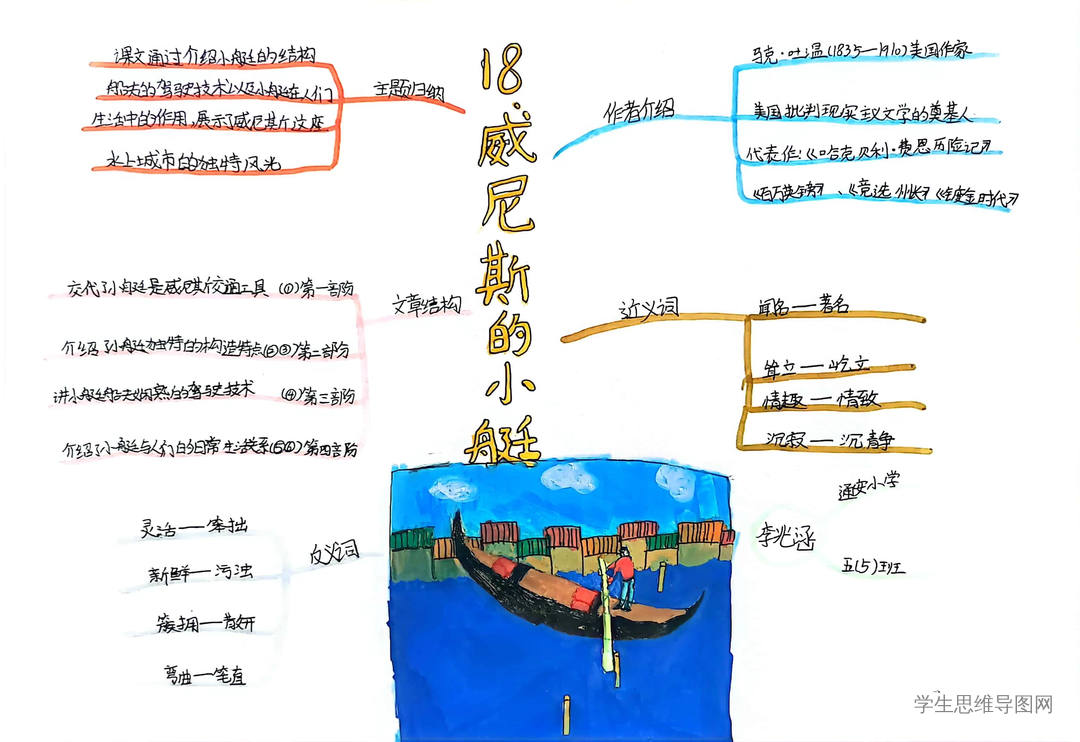 18.威尼斯的小艇
主题归纳
课文通过介绍小艇的结构
船夫的驾驶技术以及小艇在人们
生活中的作用,展示了威尼斯这座
水上城市的独特风光
作者介绍
马克·吐温(1835—1910)美国作家
美国批判现实主义文学的奠基人
代表作:《哈克贝利·费恩历险记》
《百万英镑》、《竞选州长》《镀金时代》
文章结构
交代了小艇是威尼斯交通工具 (①)第一部阶
介绍了小艇独特的构造特点(②③)第二部阶
讲小艇船夫娴熟的驾驶技术 (④)第三部阶
介绍了小艇与人们的日常生活联系(⑤⑥)第四部阶
近义词
闻名——著名
耸立——屹立
情趣——情致
沉寂——沉静
反义词
灵活——笨拙
新鲜——污浊
簇拥——散开
弯曲——笔直
李兆涵
通安小学
五(5)班
学生思维导图网